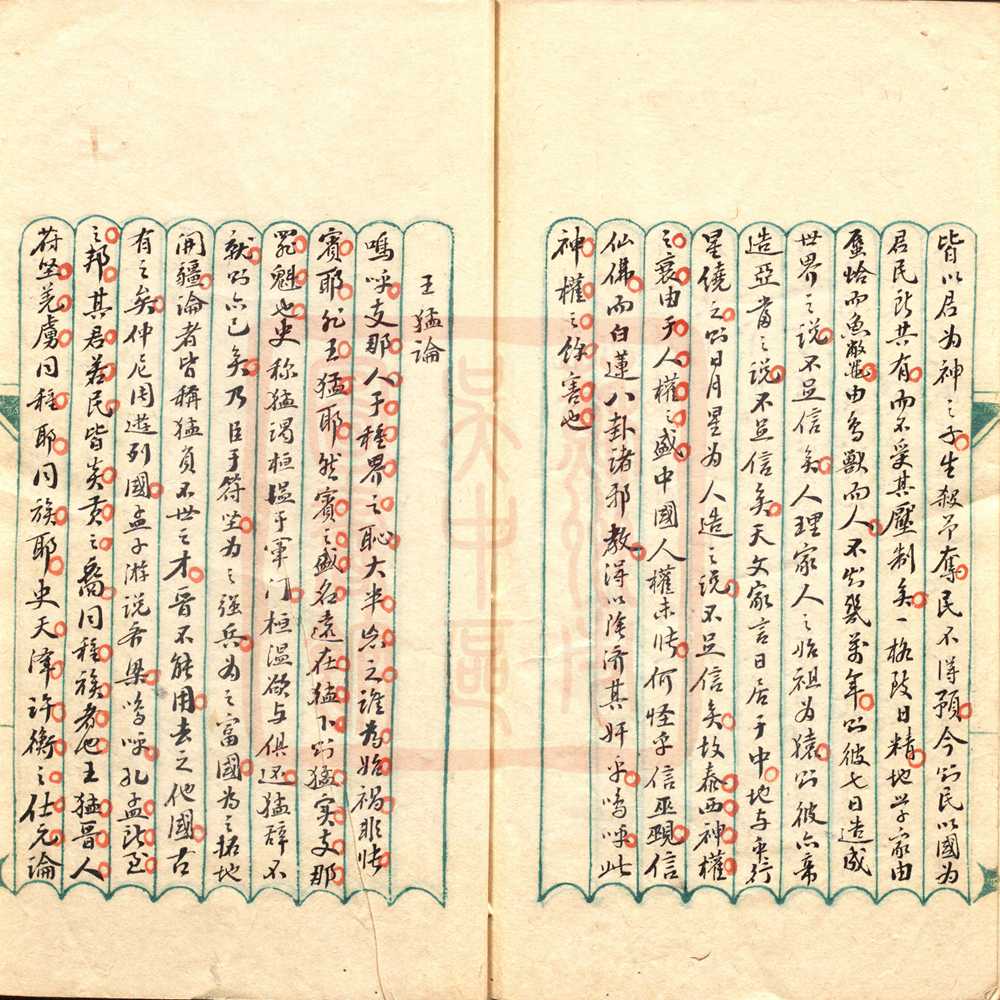 皆以君为神之子生殺予奪民不得預今則民以國为
君民所共有而不受其壓制矣一格致日精地学家由
蜃蛤而魚鱉由鳥獸而人不知幾萬年則彼七日造成
世界之说不足信矣人理家人之始祖为猿則彼六来
造亞當之说不足信矣天文家言日居于中地与五行
星繞之則日月星为人造之说不足信矣故泰西神權
之衰由于人權之盛中國人權未张何怪乎信巫覡信
仙佛而白蓮八卦诸邪教得以陰济其奸乎嗚呼此
神權之餘害也
王猛論
嗚呼支那人于種界之恥大半忘之誰为始禍非张
賓耶非王猛耶然賓之盛名遠在猛下則猛实支那
罪魁也史称猛謁桓温于軍门桓温欲与俱还猛辞不
就則亦已矣乃臣于符坚为之强兵为之富國为之拓地
開疆論者皆稱猛负不世之才晋不能用去之他國古
有之矣仲尼周遊列國孟子游说齐梁嗚呼孔孟所至
之邦其君若民皆炎黄之裔同種族者也王猛晋人
苻坚羌虜同種耶同族耶史天泽许衡之仕元論